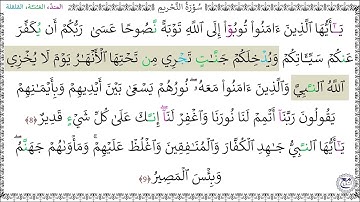 سُورَةُ التَّحْرِيمِ
المدّ، الغنّة، القلقلة
يَـٰٓأَيُّهَا ٱلَّذِينَ ءَامَنُوا۟ تُوبُوٓا۟ إِلَى ٱللَّهِ تَوْبَةً نَّصُوحًا عَسَىٰ رَبُّكُمْ أَن يُكَفِّرَ
عَنكُمْ سَيِّـَٔاتِكُمْ وَيُدْخِلَكُمْ جَنَّـٰتٍ تَجْرِى مِن تَحْتِهَا ٱلْأَنْهَـٰرُ يَوْمَ لَا يُخْزِى
ٱللَّهُ ٱلنَّبِىَّ وَٱلَّذِينَ ءَامَنُوا۟ مَعَهُۥ نُورُهُمْ يَسْعَىٰ بَيْنَ أَيْدِيهِمْ وَبِأَيْمَـٰنِهِمْ
يَقُولُونَ رَبَّنَآ أَتْمِمْ لَنَا نُورَنَا وَٱغْفِرْ لَنَآ إِنَّكَ عَلَىٰ كُلِّ شَىْءٍ قَدِيرٌ ﴿8﴾
يَـٰٓأَيُّهَا ٱلنَّبِىُّ جَـٰهِدِ ٱلْكُفَّارَ وَٱلْمُنَـٰفِقِينَ وَٱغْلُظْ عَلَيْهِمْ وَمَأْوَىٰهُمْ جَهَنَّمُ
وَبِئْسَ ٱلْمَصِيرُ ﴿9﴾